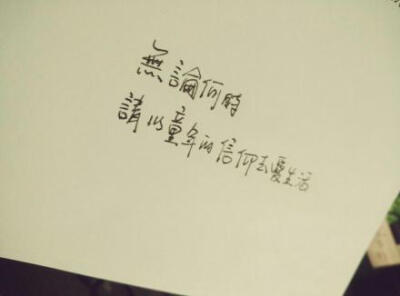 無論何時
請以童年的信仰去愛生活